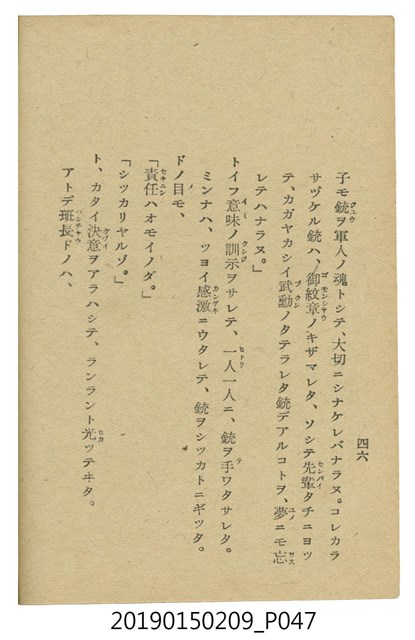 四六
子モ銃ヲ軍人ノ魂トシテ、大切ニシナケレバナラヌ。コレカラ
サヅケル銃ハ、御紋章ノキザマレタ、ソシテ先輩タチニヨツ
テ、カガヤカシイ武勳ノタテラレタ銃デアルコトヲ、夢ニモ忘
レテハナラヌ。」
トイフ意味ノ訓示ヲサレテ、一人一人ニ、銃ヲ手ワタサレタ。
ミンナハ、ツヨイ感激ニウタレテ、銃ヲシツカトニギツタ。
ドノ目モ、
「責任ハオモイノダ。」
「シツカリヤルゾ。」
ト、カタイ決意ヲアラハシテ、ランラント光ツテヰタ。
アトデ班長ドノハ、
20190150209_P047